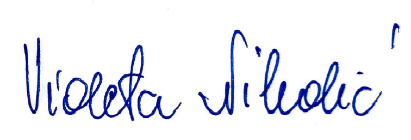 Violeta Nikolić